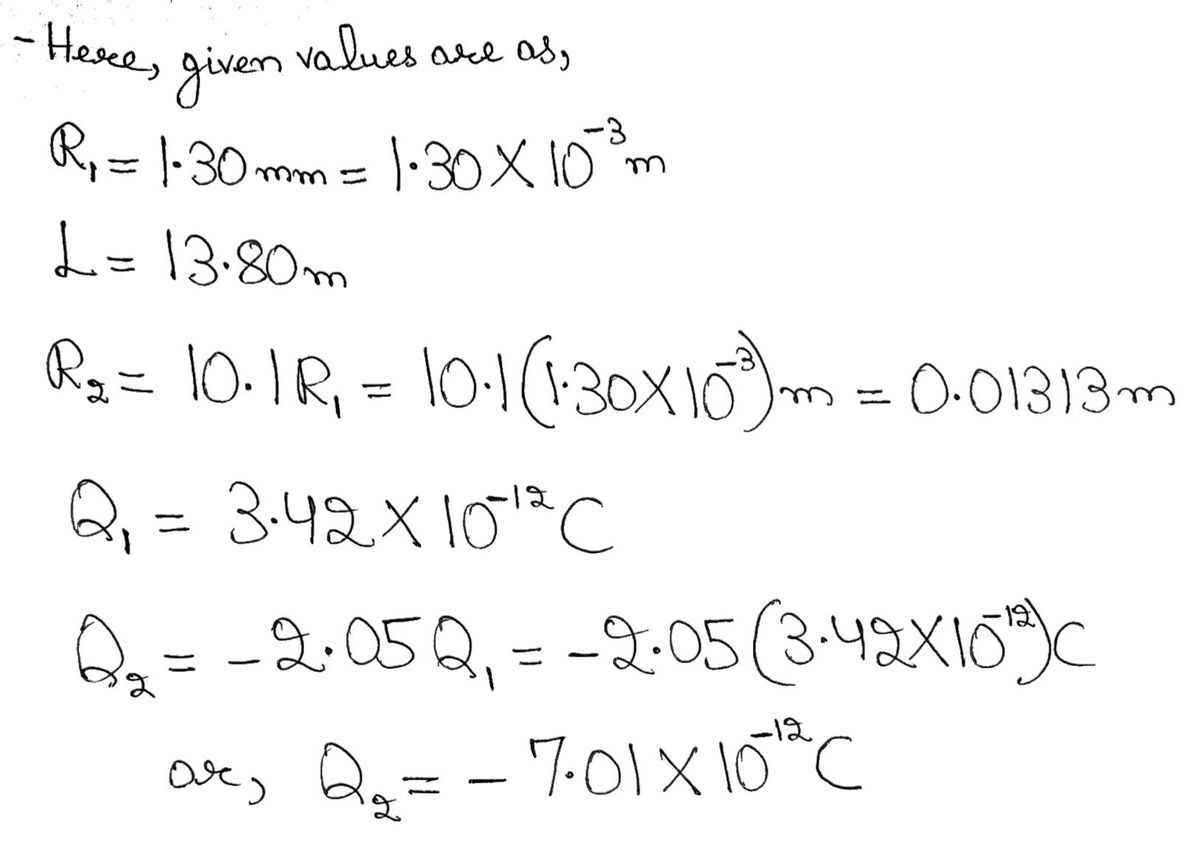 - Here, given values are as,
R₁ = 1·30 mm = 1·30 X 10⁻³ m
L = 13·80 m
R₂ = 10·1 R₁ = 10·1 (1·30 X 10⁻³) m = 0·01313 m
Q₁ = 3·42 X 10⁻¹² C
Q₂ = - 2·05 Q₁ = - 2·05 (3·42 X 10⁻¹²) C
or, Q₂ = - 7·01 X 10⁻¹² C